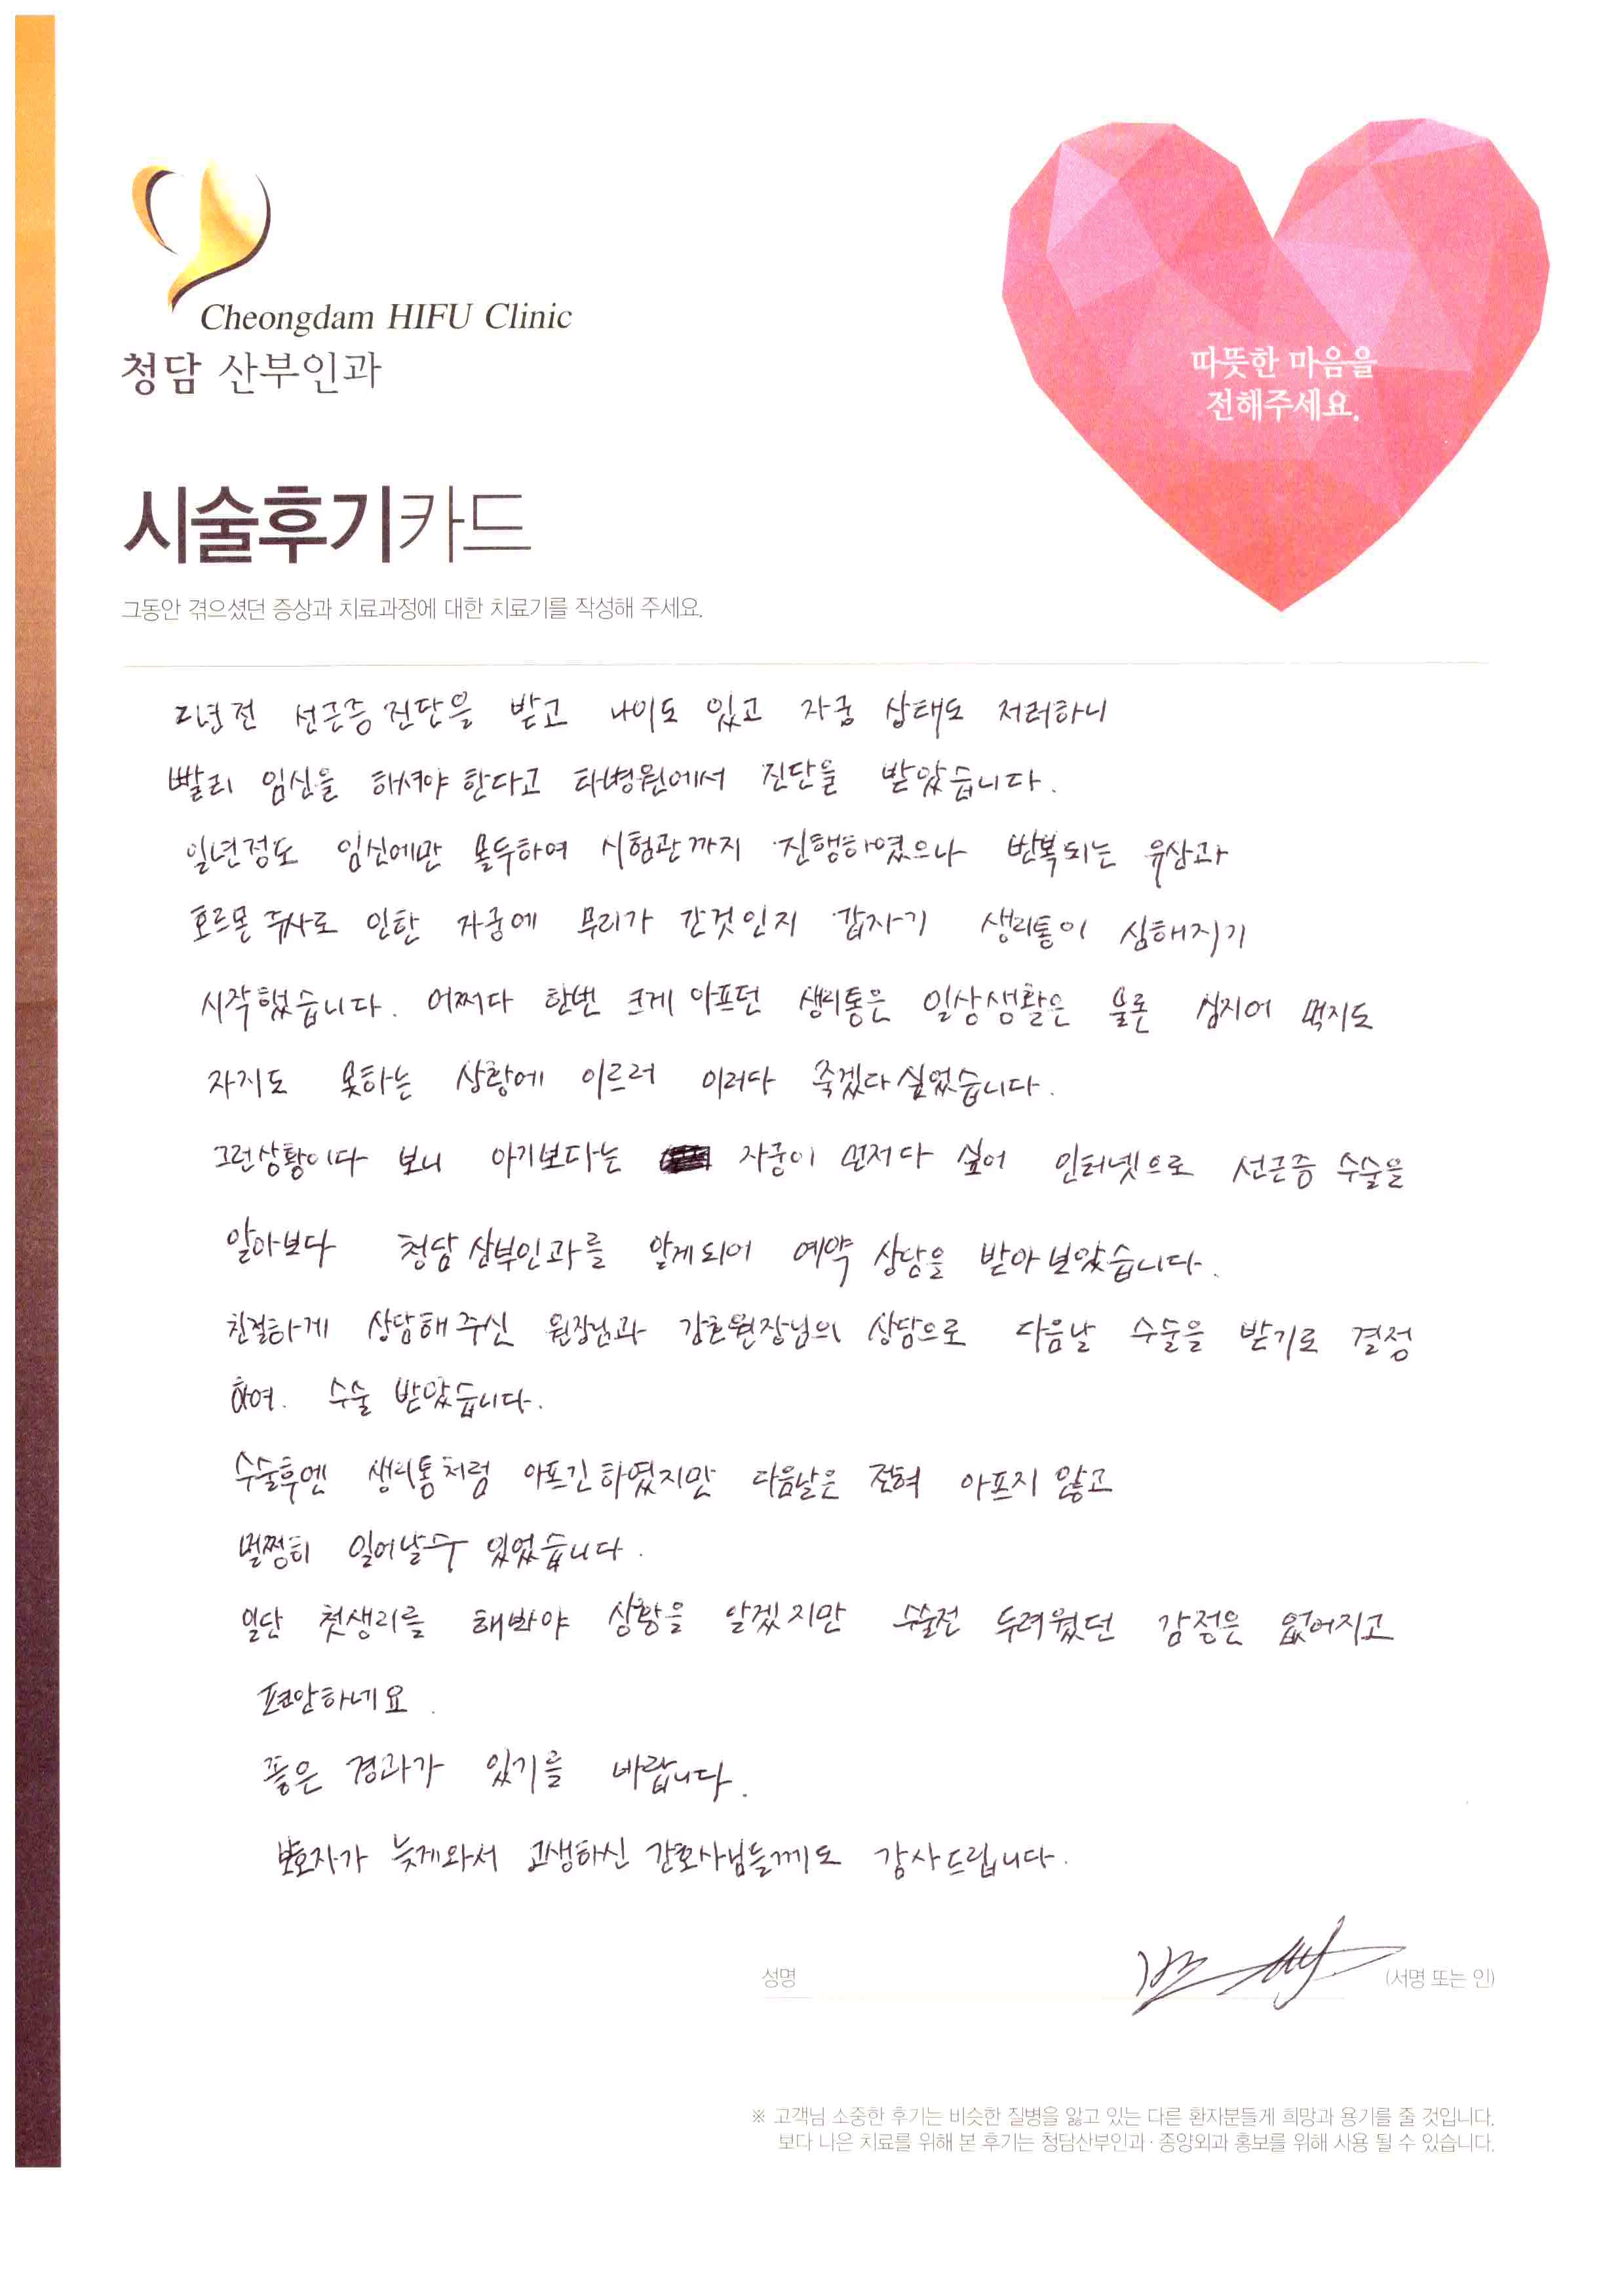 Cheongdam HIFU Clinic
청담 산부인과
따뜻한 마음을
전해주세요.
시술후기카드
그동안 겪으셨던 증상과 치료과정에 대한 치료기를 작성해 주세요.
2년전 선근증 진단을 받고 나이도 있고 자궁 상태도 저러하니
빨리 임신을 하셔야 한다고 타병원에서 진단을 받았습니다.
일년정도 임신에만 몰두하여 시험관까지 진행하였으나 반복되는 유산과
호르몬 주사로 인한 자궁에 무리가 간것인지 갑자기 생리통이 심해지기
시작했습니다. 어쩌다 한번 크게 아프던 생리통은 일상생활은 물론 심지어 먹지도
자지도 못하는 상황에 이르러 이러다 죽겠다 싶었습니다.
그런상황이다 보니 아기보다는 자궁이 먼저다 싶어 인터넷으로 선근증 수술을
알아보다 청담산부인과를 알게되어 예약 상담을 받아보았습니다.
친절하게 상담해주신 원장님과 원장님의 상담으로 다음날 수술을 받기로 결정
하여. 수술 받았습니다.
수술후엔 생리통처럼 아프긴하였지만 다음날은 전혀 아프지 않고
멀쩡히 일어날수 있었습니다.
일단 첫생리를 해봐야 상황을 알겠지만 수술전 두려웠던 감정은 없어지고
편안하네요.
좋은 경과가 있기를 바랍니다.
보호자가 늦게와서 고생하신 간호사님들께도 감사드립니다.
성명 (서명 또는 인)
※ 고객님 소중한 후기는 비슷한 질병을 앓고 있는 다른 환자분들게 희망과 용기를 줄 것입니다.
보다 나은 치료를 위해 본 후기는 청담산부인과·종양외과 홍보를 위해 사용 될 수 있습니다.